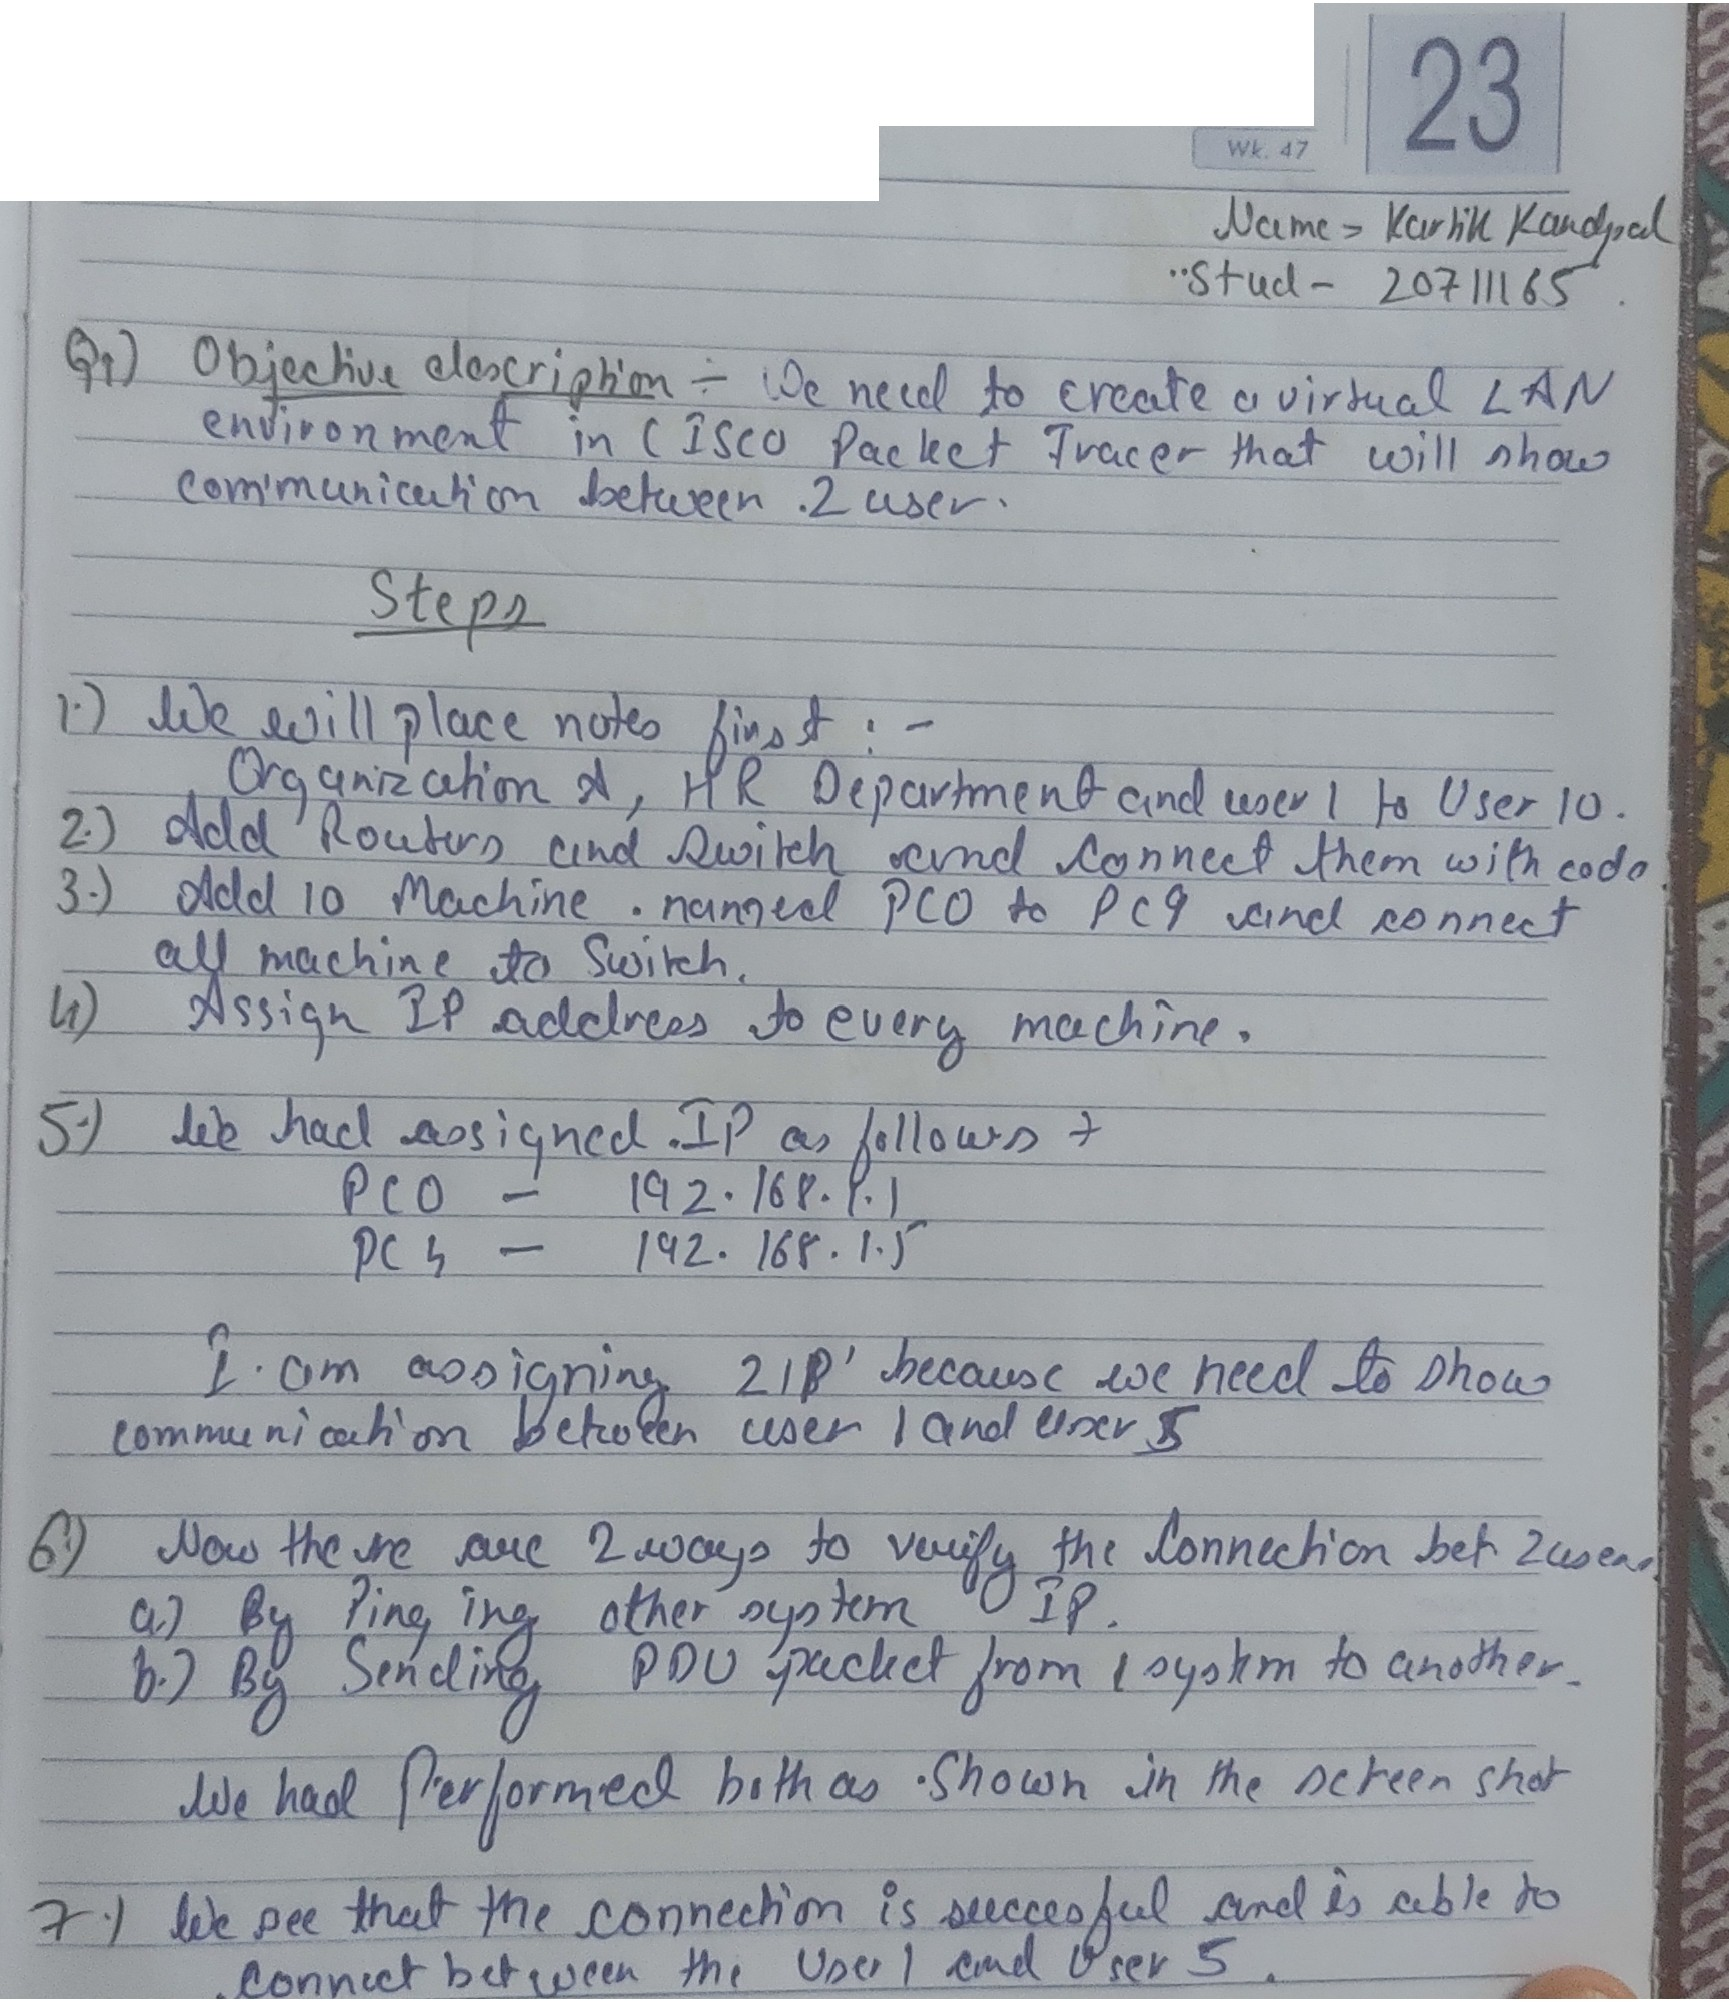 23
Wk. 47
Name > Kartik Kandpal
Stud - 20711165
Q1) Objective description ÷ We need to create a virtual LAN
environment in CISCO Packet Tracer that will show
communication between 2 user.
Steps
1.) We will place notes first : -
Organization A, HR Department and user 1 to User 10.
2.) Add Routers and Switch and Connect them with code.
3.) Add 10 Machine. named PC0 to PC9 and connect
all machine to Switch.
4) Assign IP address to every machine.
5.) We had assigned IP as follows
PC0 - 192.168.1.1
PC4 - 192.168.1.5
I am assigning 2 IP' because we need to show
communication between user 1 and User 5
6.) Now there are 2 ways to verify the Connection bet 2 users.
a.) By Pinging other system IP.
b.) By Sending PDU packet from 1 system to another.
We had Performed both as Shown in the screen shot
7.) We see that the connection is successful and is able to
connect between the User 1 and User 5.